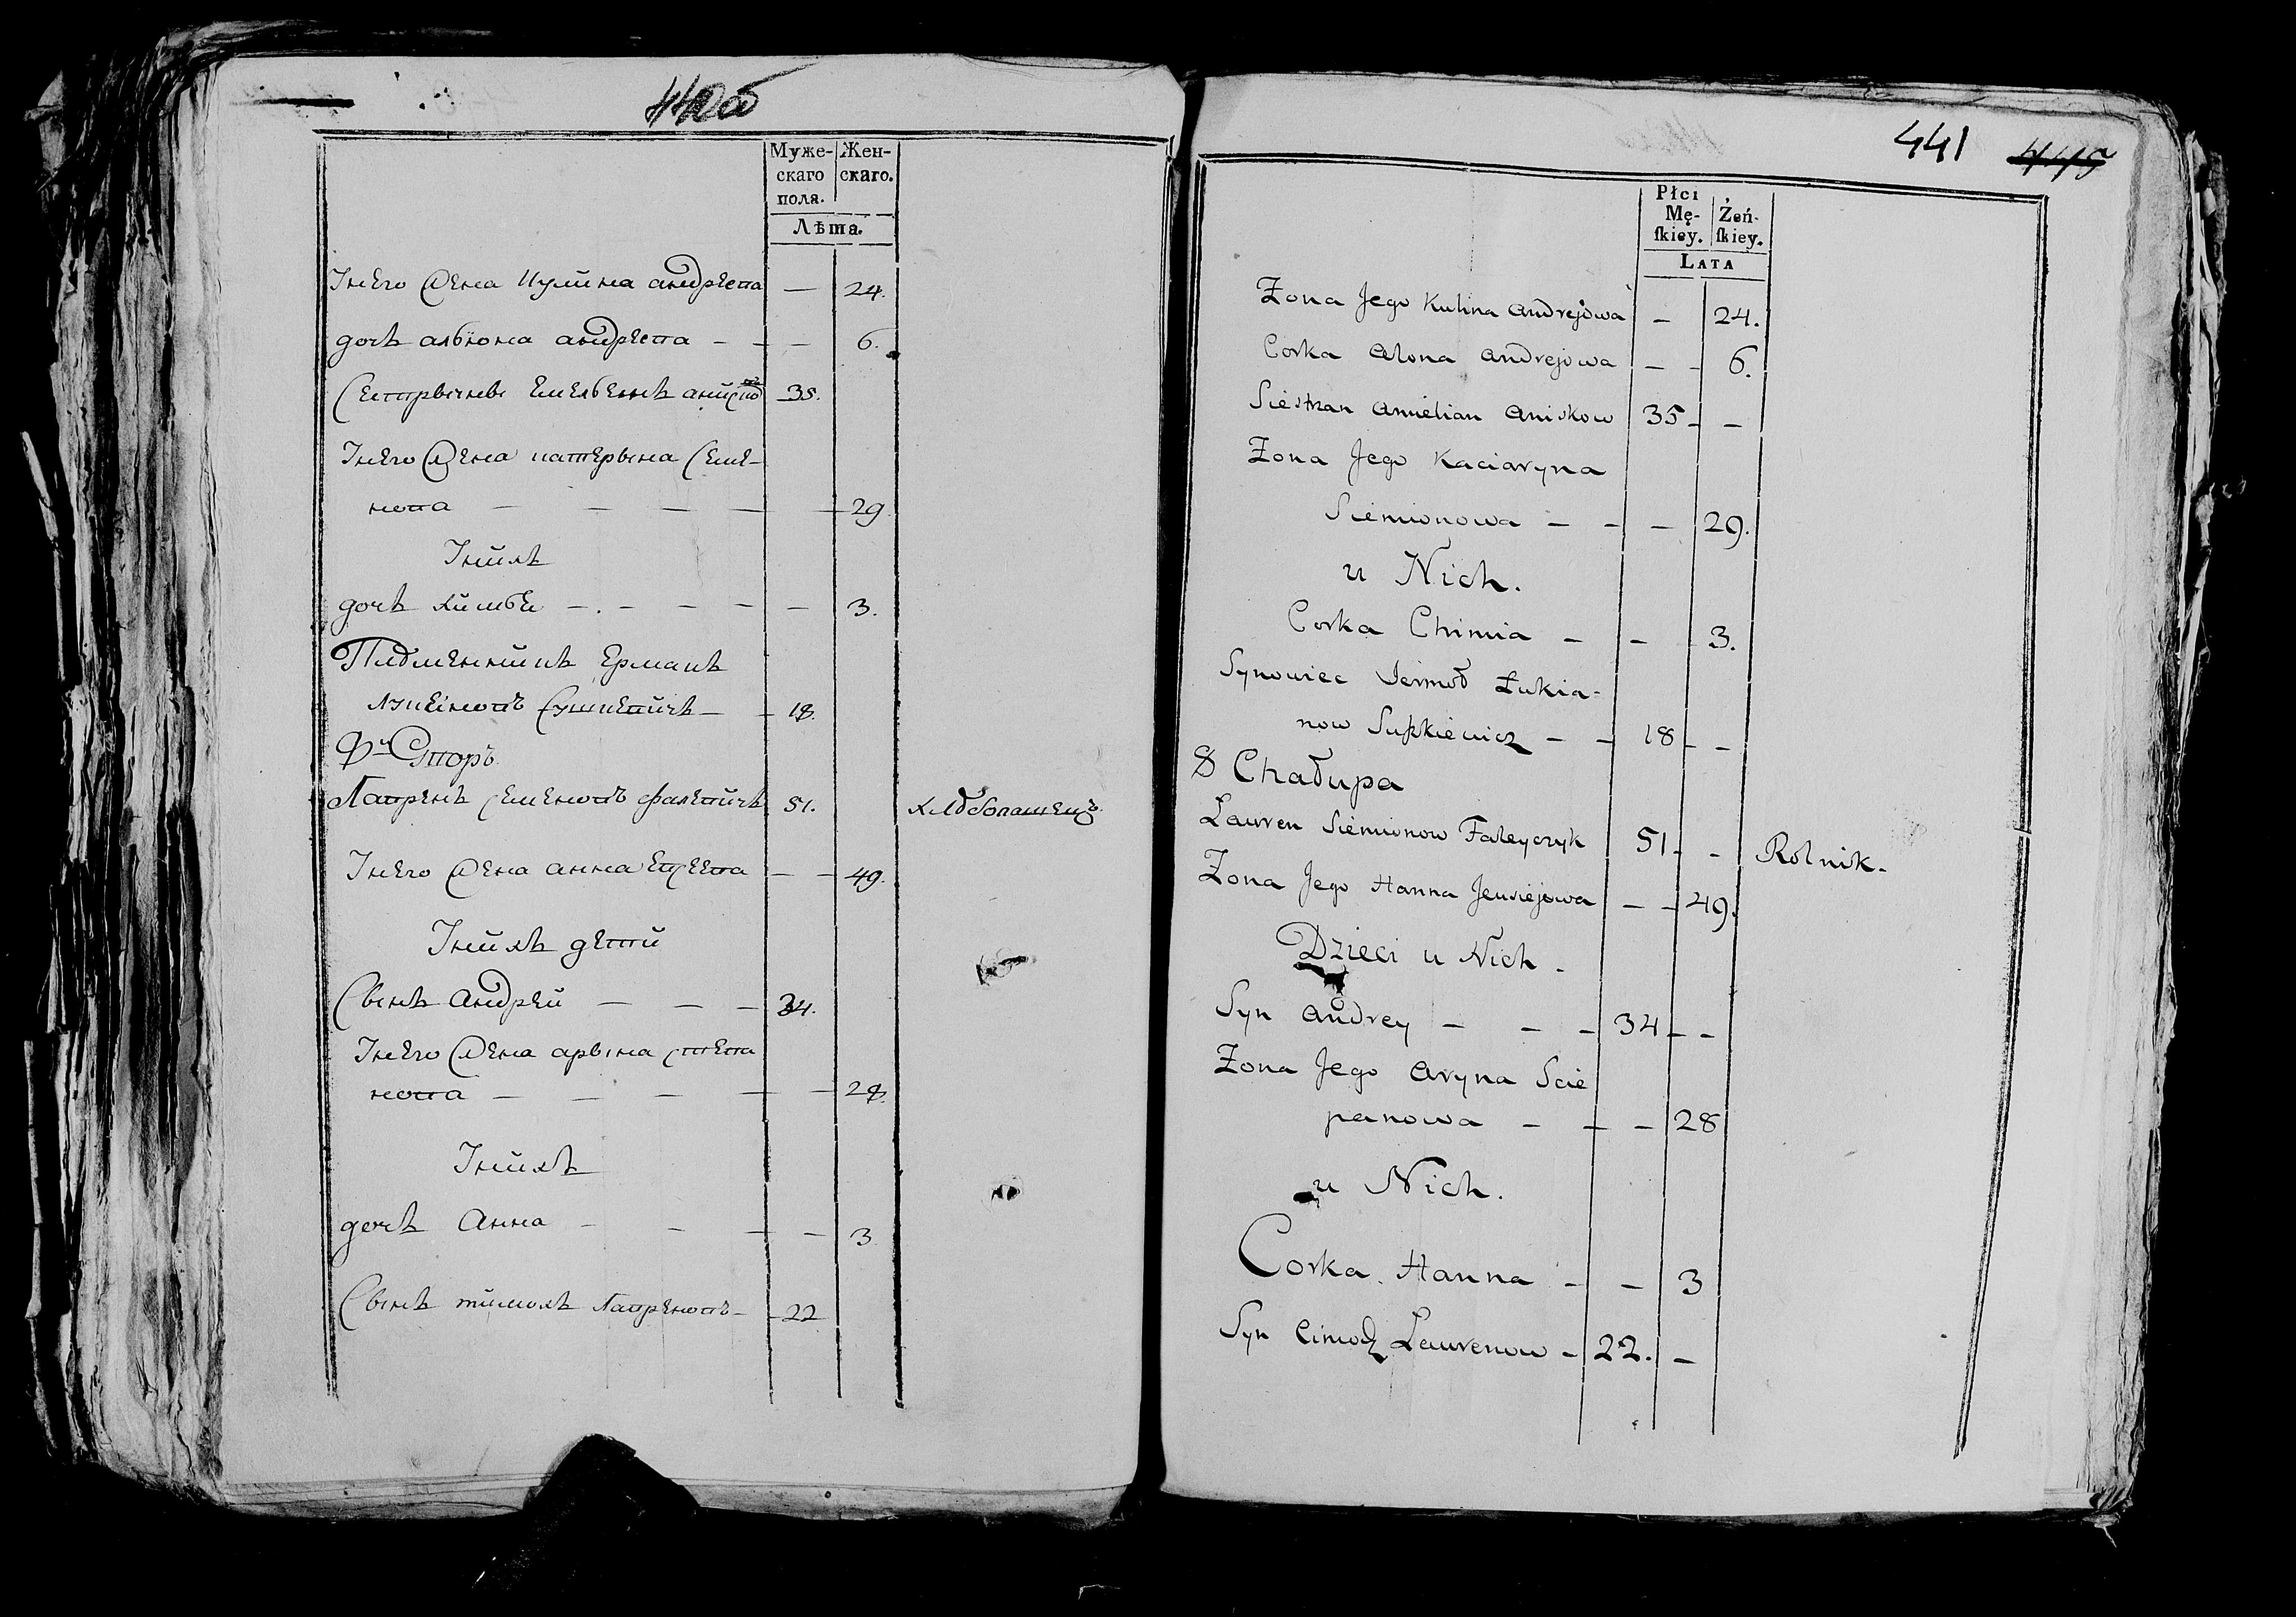 440об
Муже-
скаго
пола.
Жен-
скаго.
Лѣта.
Унего Жена Кулина андрѣева — 24.
дочь алыона андрѣева — — — 6.
Сестрычны Емельенъ аниско 35.
Унего Жена катерына Семе-
нова — — — — — 29
Унихъ
дочь химья — . — — — — 3.
Племенникъ Ермакъ
лукіновъ Сушкевичъ — — 18.
Лавренъ Семеновъ фалевичъ 51. хлѣбопашецъ
Унего Жена анна Евсеева — — 49.
Унихъ дети
Сынъ Андрей — — — 34.
Унего Жена арына степа
нова — — — — — 28.
Унихъ
дочь Анна — — — — 3
Сынъ тимохъ Лавреновъ — 22
441 445
Płci
Mę-
ſkiey.
Żeń-
ſkiey.
LATA
Żona Jego Kulina Andrejowa — 24.
Corka Alona Andrejowa — — 6.
Siestrzan Amelian Aniskow 35 — —
Żona Jego Kaciaryna
Siemionowa — — — 29.
u Nich.
Corka Chimia — — — 3.
Synowiec Jermoł Łukia-
now Suszkiewicz — — 18 — —
8 Chałupa
Lauren Siemionow Faleyczyk 51 — — Rolnik.
Żona Jego Hanna Jeusiejowa — — 49.
Dzieci u Nich.
Syn Andrey — — — 34 — —
Żona Jego Aryna Scie
panowa — — — 28
u Nich.
Corka Hanna — — 3
Syn Cimoch Laurenow — 22. —